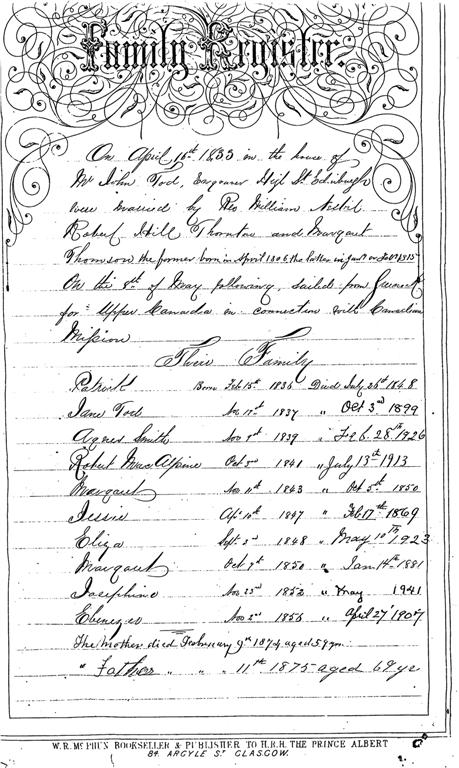 Family Register.
On April 16th 1833 in the house of
Mr John Tod, Engraver High St. Edinburgh
were married by Rev William Nisbit
Robert Hill Thornton and Margaret
Thomson the former born in April 1806, the latter in Jany or Feby 1815
On the 8th of May following, sailed from Greenock
for Upper Canada in connection with Canadian
Mission
Their Family
Patrick Born Feb 15th 1836 Died July 26th 1848
Jane Tod Nov 17th 1837 " Oct 3rd 1899
Agnes Smith Nov 9th 1839 " Feb. 28th 1926
Robert MacAlpine Oct 3rd 1841 " July 13th 1913
Margaret Nov 11th 1843 " Oct 5th 1850
Jessie Apr 10th 1847 " Feb 17th 1869
Eliza Sept 3rd 1848 " May 10th 1923
Margaret Oct 7th 1850 " Jan 14th 1881
Josephine Nov 23rd 1852 " May 1941
Ebenezer Nov 2nd 1856 " April 27 1907
The Mother died February 9th 1874, aged 59 yrs.
" Father " " 11th 1875 aged 69 yr
W. R. McPHUN BOOKSELLER & PUBLISHER TO H.R.H. THE PRINCE ALBERT
84. ARGYLE ST. GLASGOW.